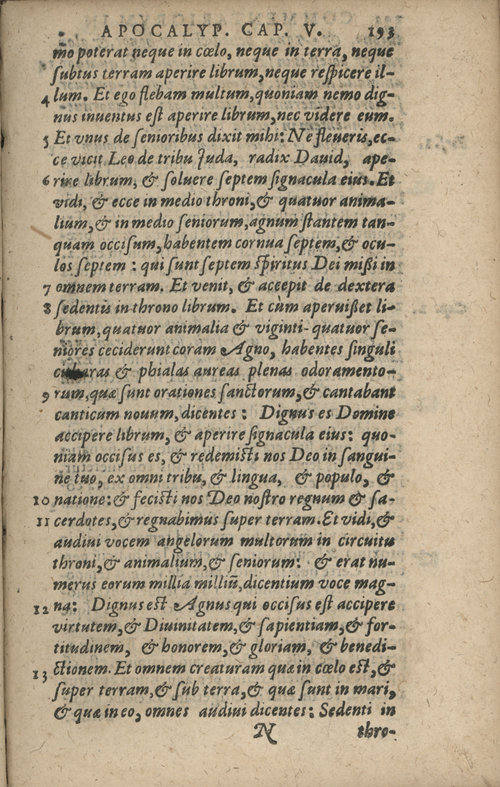 APOCALYP. CAP. V. 193
mo poterat neque in cœlo, neque in terra, neque
subtus terram aperire librum, neque respicere il-
4 lum. Et ego flebam multum, quoniam nemo dig-
nus inuentus est aperire librum, nec videre eum.
5 Et vnus de senioribus dixit mihi: Ne fleueris, ec-
ce vicit Leo de tribu Juda, radix Dauid, ape-
6 rire librum, & soluere septem signacula eius. Et
vidi, & ecce in medio throni, & quatuor anima-
lium, & in medio seniorum, agnum stantem tan-
quam occisum, habentem cornua septem, & ocu-
los septem: qui sunt septem spiritus Dei mißi in
7 omnem terram. Et venit, & accepit de dextera
8 sedentis in throno librum. Et cùm aperuißet li-
brum, quatuor animalia & viginti-quatuor se-
niores ceciderunt coram Agno, habentes singuli
citharas & phialas aureas plenas odoramento-
9 rum, quæ sunt orationes sanctorum, & cantabant
canticum nouum, dicentes: Dignus es Domine
accipere librum, & aperire signacula eius: quo-
niam occisus es, & redemisti nos Deo in sangui-
ne tuo, ex omni tribu, & lingua, & populo, &
10 natione: & fecisti nos Deo nostro regnum & sa-
11 cerdotes, & regnabimus super terram. Et vidi, &
audiui vocem angelorum multorum in circuitu
throni, & animalium, & seniorum: & erat nu-
merus eorum millia milliū, dicentium voce mag-
12 na: Dignus est Agnus qui occisus est accipere
virtutem, & Diuinitatem, & sapientiam, & for-
titudinem, & honorem, & gloriam, & benedi-
13 ctionem. Et omnem creaturam quæ in cœlo est, &
super terram, & sub terra, & quæ sunt in mari,
& quæ in eo, omnes audiui dicentes: Sedenti in
N thro-